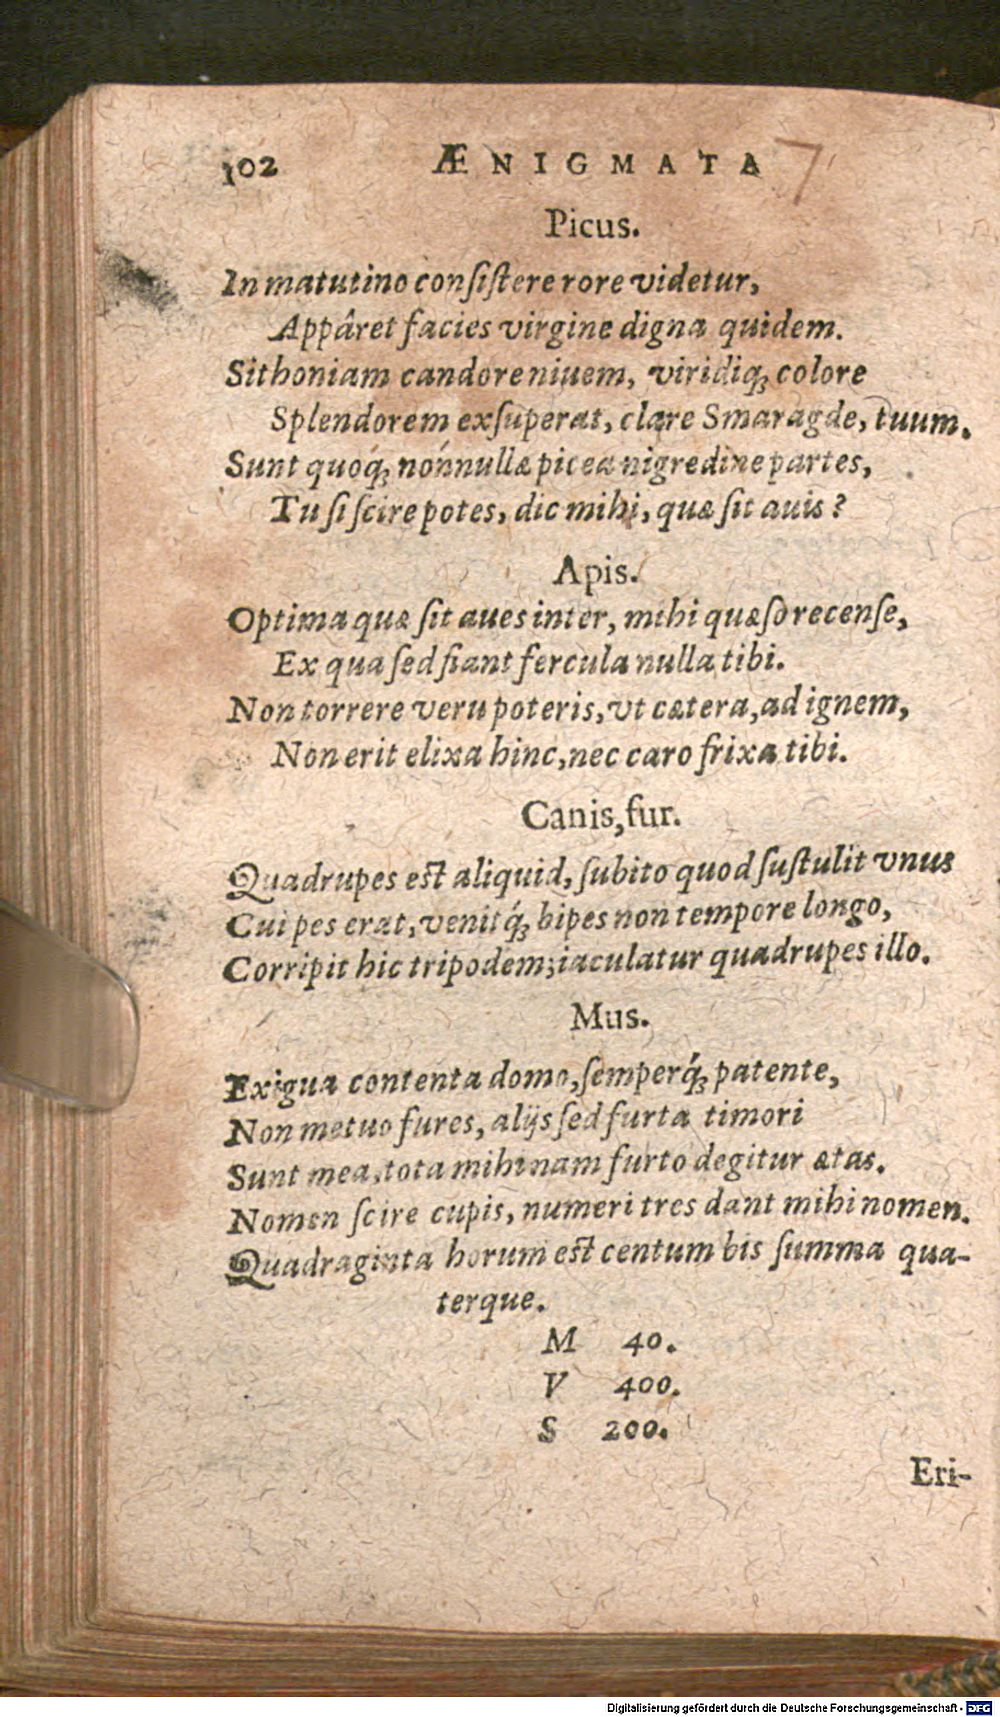 102 ÆNIGMATA 7
Picus.
In matutino conſiſtere rore videtur,
Appâret facies virgine digna quidem.
Sithoniam candore niuem, viridiq́ꝫ colore
Splendorem exſuperat, clare Smaragde, tuum.
Sunt quoq́ꝫ nónnullæ picea nigredine partes,
Tu ſi ſcire potes, dic mihi, quæ ſit auis?
Apis.
Optima quæ ſit aues inter, mihi quæſo recenſe,
Ex qua ſed fiant fercula nulla tibi.
Non torrere veru poteris, vt cætera, ad ignem,
Non erit elixa hinc, nec caro frixa tibi.
Canis, fur.
Quadrupes eſt aliquid, ſubito quod ſuſtulit vnus
Cui pes erat, venitq́ꝫ bipes non tempore longo,
Corripit hic tripodem; iaculatur quadrupes illo.
Mus.
Exigua contenta domo, ſemperq́ꝫ patente,
Non metuo fures, alijs ſed furta timori
Sunt mea, tota mihi nam furto degitur ætas.
Nomen ſcire cupis, numeri tres dant mihi nomen.
Quadraginta horum eſt centum bis ſumma qua-
terque.
M 40.
V 400.
S 200.
Eri-
Digitalisierung gefördert durch die Deutsche Forschungsgemeinschaft - DFG